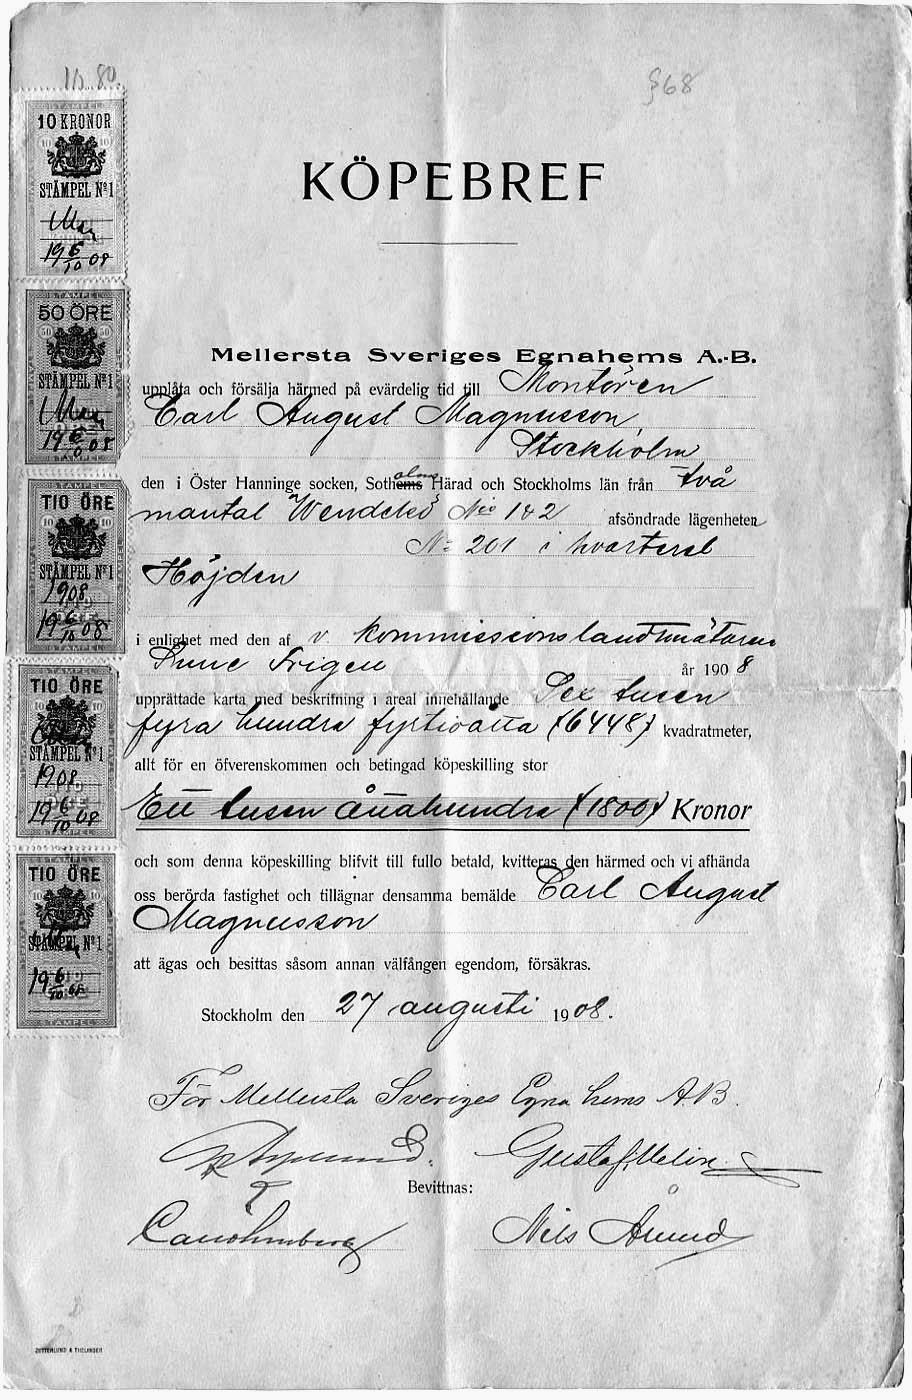 10.80.
§68
10 KRONOR
STÄMPEL Nº1
19 6/10 08
50 ÖRE
STÄMPEL Nº1
19 6/10 08
TIO ÖRE
STÄMPEL Nº1
1908
19 6/10 08
TIO ÖRE
STÄMPEL Nº1
1908
19 6/10 08
TIO ÖRE
STÄMPEL Nº1
19 6/10 08
STÄMPEL
KÖPEBREF
Mellersta Sveriges Egnahems A.-B.
upplåta och försälja härmed på evärdelig tid till Montören
Carl August Magnusson,
Stockholm
den i Öster Hanninge socken, Sothems olms Härad och Stockholms län från två
mantal Wendelsö Nis 1 & 2 afsöndrade lägenheten
Nº 201 i kvarteret
Höjden
i enlighet med den af v. kommissionslandtmätaren
Rune Frigell år 1908
upprättade karta med beskrifning i areal innehållande Sex tusen
fyra hundra fyrtioåtta (6448) kvadratmeter,
allt för en öfverenskommen och betingad köpeskilling stor
Ett tusen åttahundra (1800) Kronor
och som denna köpeskilling blifvit till fullo betald, kvitteras den härmed och vi afhända
oss berörda fastighet och tillägnar densamma bemälde Carl August
Magnusson
att ägas och besittas såsom annan välfången egendom, försäkras.
Stockholm den 27 augusti 1908.
För Mellersta Sveriges Egna hems A.B.
Gustaf Melin
Bevittnas:
Nils Åmund
ZETTERLUND & THELANDER